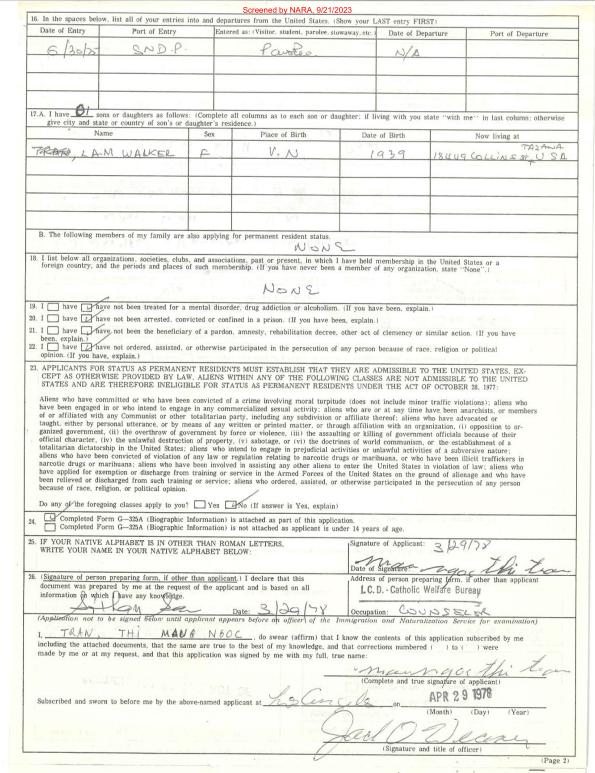 Screened by NARA, 9/21/2023
16. In the spaces below, list all of your entries into and departures from the United States. (Show your LAST entry FIRST)
Date of Entry Port of Entry Entered as: (Visitor, student, parolee, stowaway, etc.) Date of Departure Port of Departure
6/30/75 SND.P. Parolee N/A
17.A. I have 01 sons or daughters as follows: (Complete all columns as to each son or daughter; if living with you state "with me" in last column; otherwise
give city and state or country of son's or daughter's residence.)
Name Sex Place of Birth Date of Birth Now living at
TAZANA
LAM WALKER F V.N 1939 18449 COLLINS ST, USA
B. The following members of my family are also applying for permanent resident status.
NONE
18. I list below all organizations, societies, clubs, and associations, past or present, in which I have held membership in the United States or a
foreign country, and the periods and places of such membership. (If you have never been a member of any organization, state "None".)
NONE
19. I have have not been treated for a mental disorder, drug addiction or alcoholism. (If you have been, explain.)
20. I have have not been arrested, convicted or confined in a prison. (If you have been, explain.)
21. I have have not been the beneficiary of a pardon, amnesty, rehabilitation decree, other act of clemency or similar action. (If you have
been, explain.)
22. I have have not ordered, assisted, or otherwise participated in the persecution of any person because of race, religion or political
opinion. (If you have, explain.)
23. APPLICANTS FOR STATUS AS PERMANENT RESIDENTS MUST ESTABLISH THAT THEY ARE ADMISSIBLE TO THE UNITED STATES, EX-
CEPT AS OTHERWISE PROVIDED BY LAW, ALIENS WITHIN ANY OF THE FOLLOWING CLASSES ARE NOT ADMISSIBLE TO THE UNITED
STATES AND ARE THEREFORE INELIGIBLE FOR STATUS AS PERMANENT RESIDENTS UNDER THE ACT OF OCTOBER 28, 1977:
Aliens who have committed or who have been convicted of a crime involving moral turpitude (does not include minor traffic violations); aliens who
have been engaged in or who intend to engage in any commercialized sexual activity; aliens who are or at any time have been anarchists, or members
of or affiliated with any Communist or other totalitarian party, including any subdivision or affiliate thereof; aliens who have advocated or
taught, either by personal utterance, or by means of any written or printed matter, or through affiliation with an organization, (i) opposition to or-
ganized government, (ii) the overthrow of government by force or violence, (iii) the assaulting or killing of government officials because of their
official character, (iv) the unlawful destruction of property, (v) sabotage, or (vi) the doctrines of world communism, or the establishment of a
totalitarian dictatorship in the United States; aliens who intend to engage in prejudicial activities or unlawful activities of a subversive nature;
aliens who have been convicted of violation of any law or regulation relating to narcotic drugs or marihuana, or who have been illicit traffickers in
narcotic drugs or marihuana; aliens who have been involved in assisting any other aliens to enter the United States in violation of law; aliens who
have applied for exemption or discharge from training or service in the Armed Forces of the United States on the ground of alienage and who have
been relieved or discharged from such training or service; aliens who ordered, assisted, or otherwise participated in the persecution of any person
because of race, religion, or political opinion.
Do any of the foregoing classes apply to you? Yes No (If answer is Yes, explain)
24. Completed Form G-325A (Biographic Information) is attached as part of this application.
Completed Form G-325A (Biographic Information) is not attached as applicant is under 14 years of age.
25. IF YOUR NATIVE ALPHABET IS IN OTHER THAN ROMAN LETTERS,
WRITE YOUR NAME IN YOUR NATIVE ALPHABET BELOW:
Signature of Applicant: 3/29/78
Date of Signature: ngoc thi tran
26. (Signature of person preparing form, if other than applicant.) I declare that this
document was prepared by me at the request of the applicant and is based on all
information on which I have any knowledge.
Date: 3/29/78
Address of person preparing form, if other than applicant
I.C.D. - Catholic Welfare Bureau
Occupation: COUNSELOR
(Application not to be signed below until applicant appears before an officer of the Immigration and Naturalization Service for examination)
I, TRAN, THI MANG NGOC, do swear (affirm) that I know the contents of this application subscribed by me
including the attached documents, that the same are true to the best of my knowledge, and that corrections numbered ( ) to ( ) were
made by me or at my request, and that this application was signed by me with my full, true name:
ngoc thi tran
(Complete and true signature of applicant)
Subscribed and sworn to before me by the above-named applicant at Los Angeles on APR 29 1978
(Month) (Day) (Year)
Jack O
(Signature and title of officer)
(Page 2)